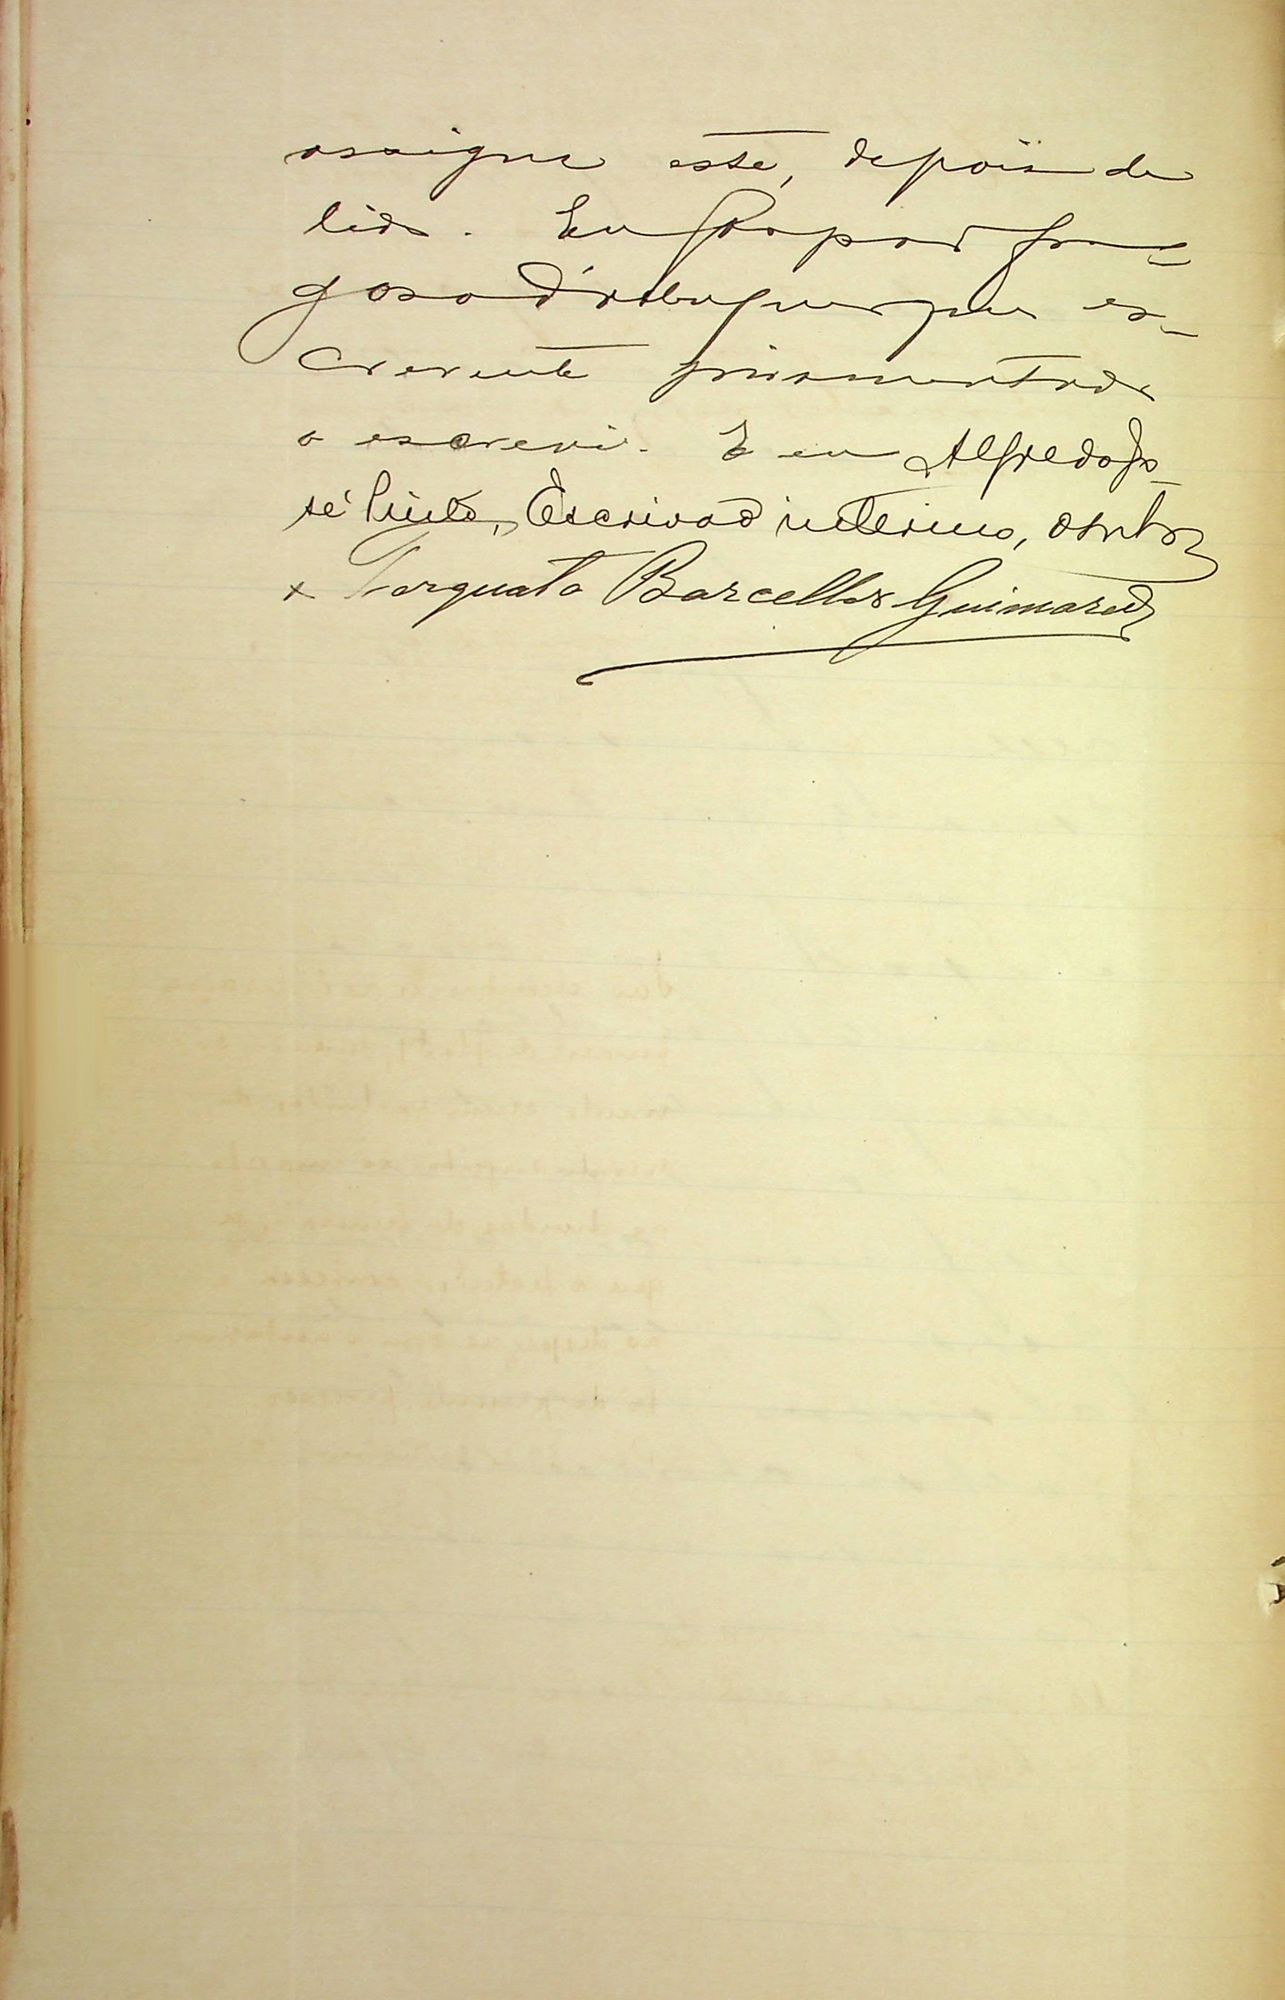 assigna este, depois de
lido. Eu Gaspar Fra-
goso d'Albuquerque es-
crevente juramentado
o escrevi. E eu Alfredo Jo-
sé Pinto, Escrivaõ interino,
x Torquato Barcellos Guimarães